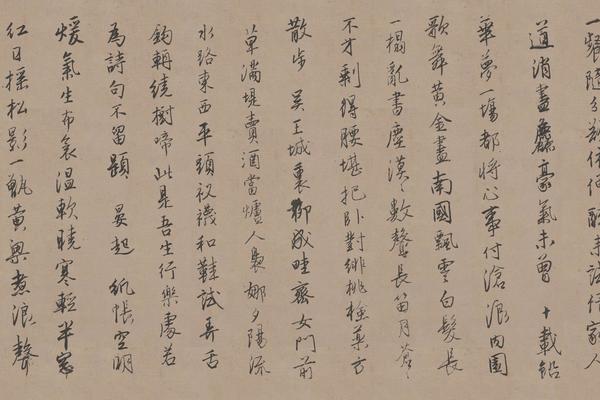 隨分 家人
道消盡麤豪氣未曾 十載鉛
華夢一場都將心事付滄浪內園
歌舞黃金盡南國飄零白髮長
一搨亂書塵漠〻數聲長笛月蒼〻
不才剩得腰堪把臥對緋桃檢藥方
散步 吳王城裏柳成畦齊女門前
草滿堤賣酒當爐人裊娜夕陽流
水路東西平頭衩襪和鞋試弄舌
鉤輈繞樹啼此是吾生行樂處若
為詩句不留題 晏起 紙帳空明
煖氣生布衾溫軟曉寒輕半窓
紅日搖松影一甑黃粱煮浪聲